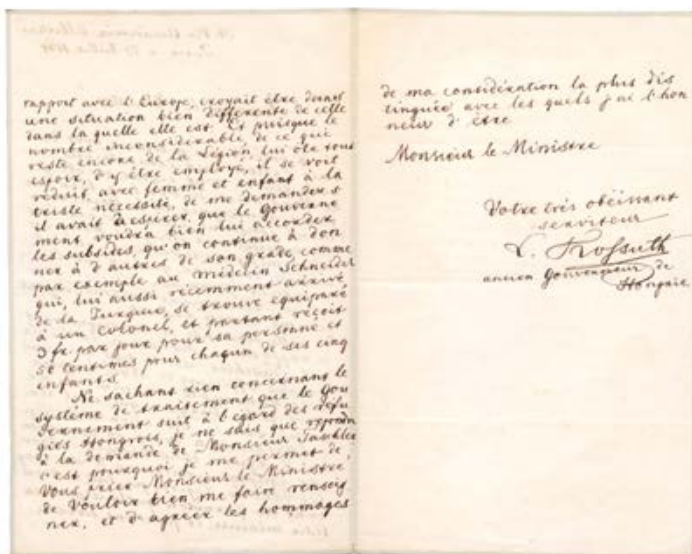 rapport avec l'Europe, croyait être dans
une situation bien differente de celle
dans la quelle elle est. Et puisque le
nombre inconsidérable, de ce qui
reste encore de la Légion, lui ôte tout
espoir, d'y être employé, il se voit
réduit, avec femme et enfant à la
triste nécessité, de me demander s'
il avait à espérer, que le Gouverne
ment, voudra bien lui accorder
les subsides, qu'on continue à don
ner à d'autres de son grade, comme
par exemple au Médecin Schneider
qui, lui aussi récemment arrivé
de la Turquie, se trouve equiparé
à un Colonel, et partant reçoit
3 fr. par jour pour sa personne et
50 centimes pour chaqun de ses cinq
enfants.
Ne sachant rien concernant le
système de traitement que le Gou
vernement suit à l'egard des réfu
giés Hongrois, je ne sais que repondre
à la demande de Monsieur
c'est pourquoi je me permet de,
Vous prier Monsieur le Ministre
de Vouloir bien me faire renseig
ner, et d'agréer les hommages
de ma considération la plus dis
tinguée avec les quels j'ai l'hon
neur d'être
Monsieur le Ministre
Votre très obéissant
serviteur
L. Kossuth
ancien Gouverneur de
Hongrie